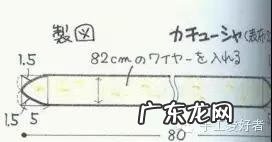 製図
カチューシャ(表布
1.5
82cmのワイヤーを入れる
1.5
5
80
广东龙网
手工爱好者